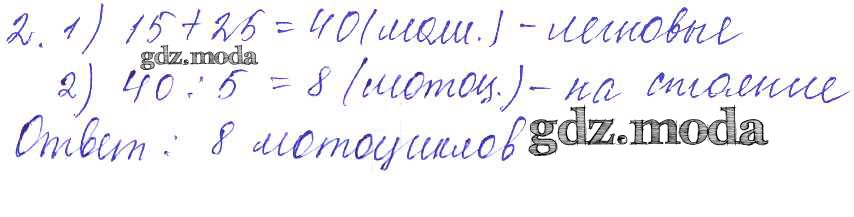 2. 1) 15+25=40(маш.) - легковые
gdz.moda
2) 40:5 = 8 (мотоц.) - на стоянке
Ответ: 8 мотоциклов gdz.moda